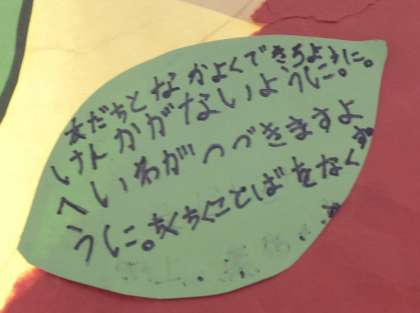 友だちとなかよくできるように。
けんかがないように。
へいわがつづきますよ
うに。ちくちくことばをなくす。